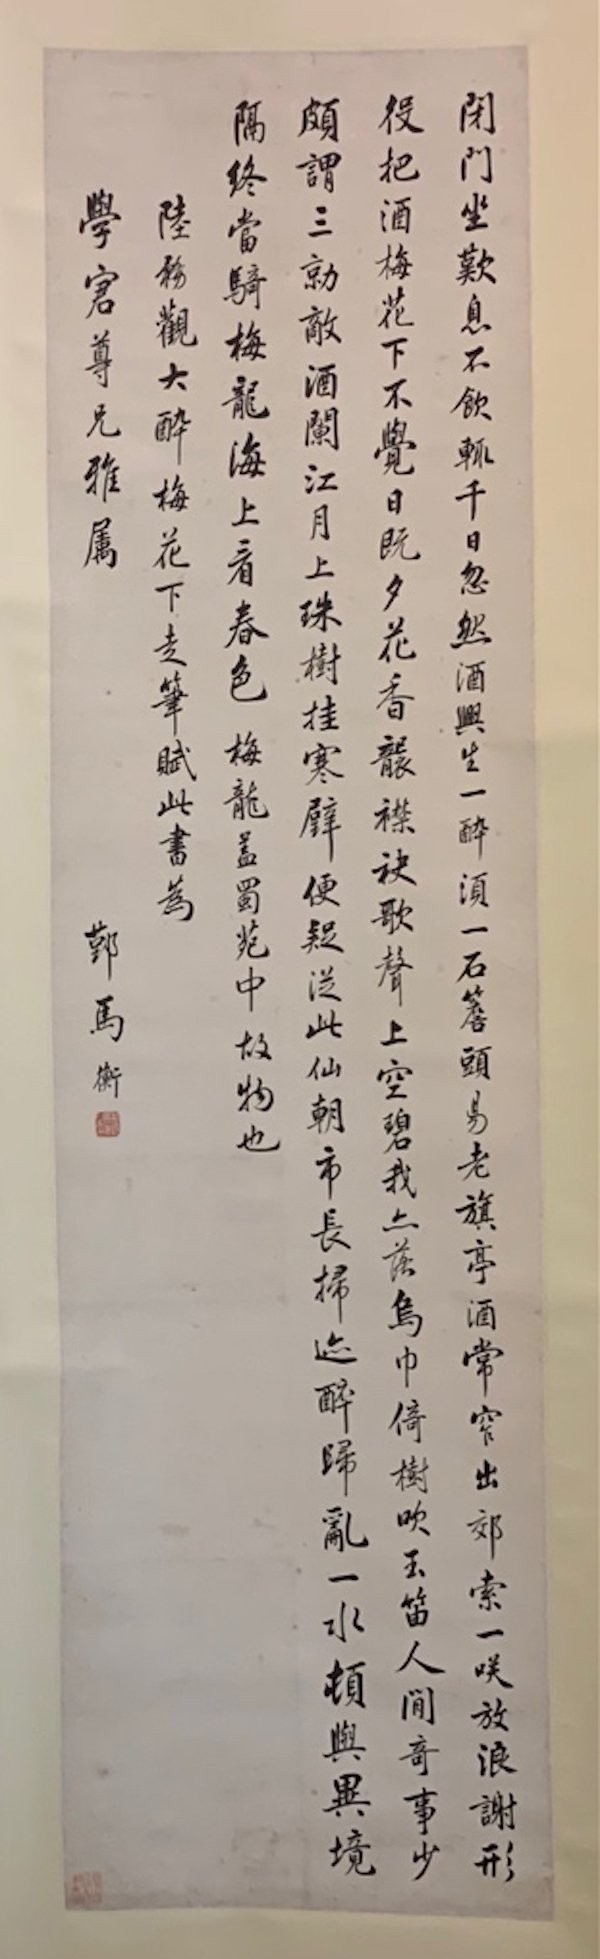 閉門坐歎息不飲輒千日忽然酒興生一醉須一石簷頭易老旗亭酒常窄出郊索一咲放浪謝形
役把酒梅花下不覺日既夕花香襲襟袂歌聲上空碧我亦落烏巾倚樹吹玉笛人間奇事少
頗謂三勍敵酒闌江月上珠樹挂寒壁便疑從此仙朝市長掃迹醉歸亂一水頓與異境
隔終當騎梅龍海上看春色 梅龍蓋蜀苑中故物也
陸務觀大醉梅花下走筆賦此書為
學宭尊兄雅屬
鄞馬衡